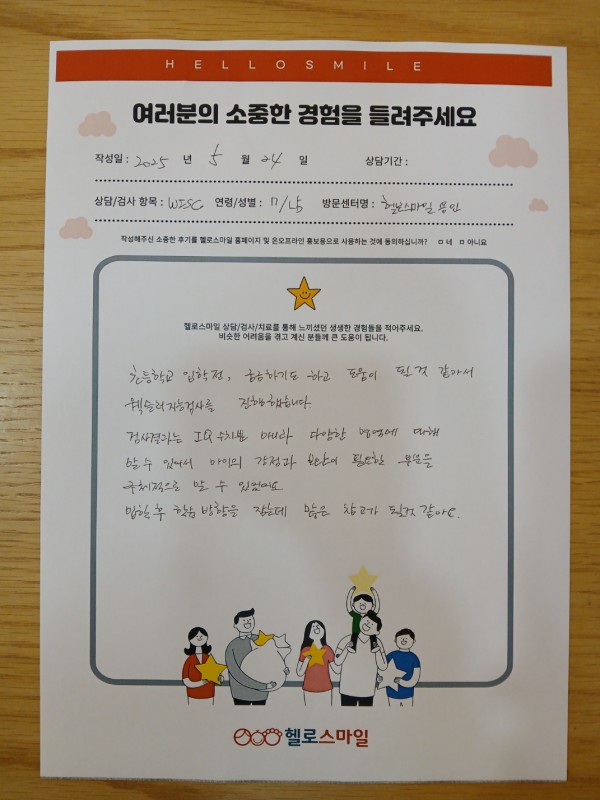 HELLOSMILE
여러분의 소중한 경험을 들려주세요
작성일 : 2025 년 5 월 24 일 상담기간 :
상담/검사 항목 : WISC 연령/성별 : 7/남 방문센터명 : 헬로스마일 용인
작성해주신 소중한 후기를 헬로스마일 홈페이지 및 온오프라인 홍보용으로 사용하는 것에 동의하십니까? ㅁ 네 ㅁ 아니요
헬로스마일 상담/검사/치료를 통해 느끼셨던 생생한 경험들을 적어주세요.
비슷한 어려움을 겪고 계신 분들께 큰 도움이 됩니다.
초등학교 입학전, 궁금하기도 하고 도움이 될것 같아서
웩슬러지능검사를 진행했습니다.
검사결과는 IQ 수치뿐 아니라 다양한 영역에 대해
알 수 있어서 아이의 강점과 보완이 필요한 부분을
구체적으로 알 수 있었어요.
입학 후 학습 방향을 잡는데 많은 참고가 될것 같아요.
헬로스마일